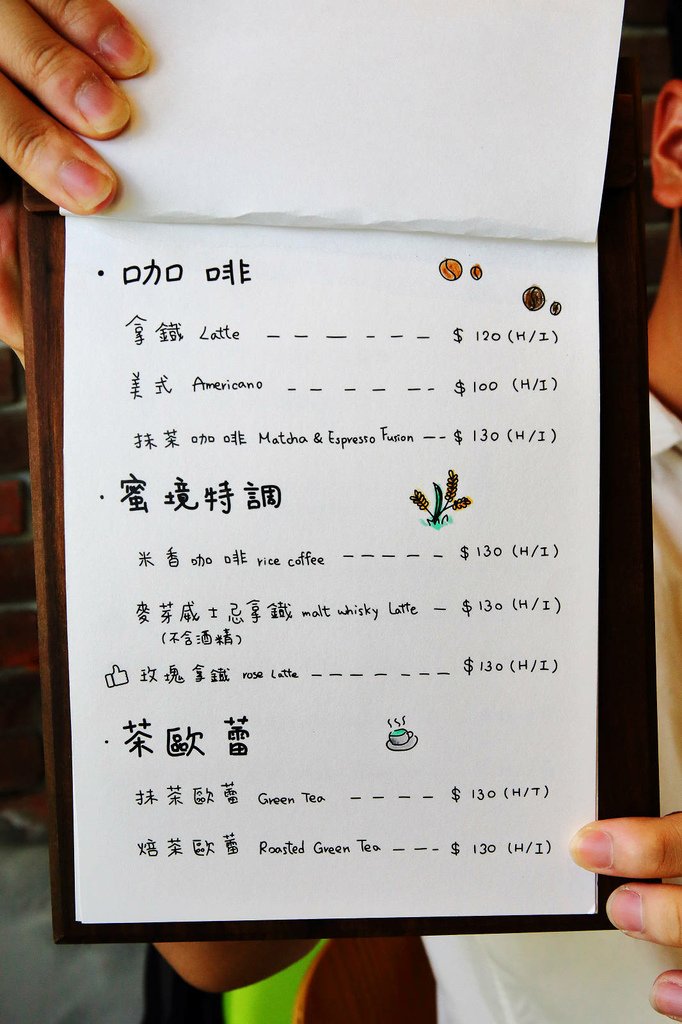 · 咖啡
拿鐵 Latte ------ $120 (H/I)
美式 Americano ------ $100 (H/I)
抹茶咖啡 Matcha & Espresso Fusion -- $130 (H/I)
· 蜜境特調
米香咖啡 rice coffee ------ $130 (H/I)
麥芽威士忌拿鐵 malt whisky Latte - $130 (H/I)
(不含酒精)
玫瑰拿鐵 rose Latte ------- $130 (H/I)
· 茶歐蕾
抹茶歐蕾 Green Tea ---- $130 (H/T)
焙茶歐蕾 Roasted Green Tea --- $130 (H/I)